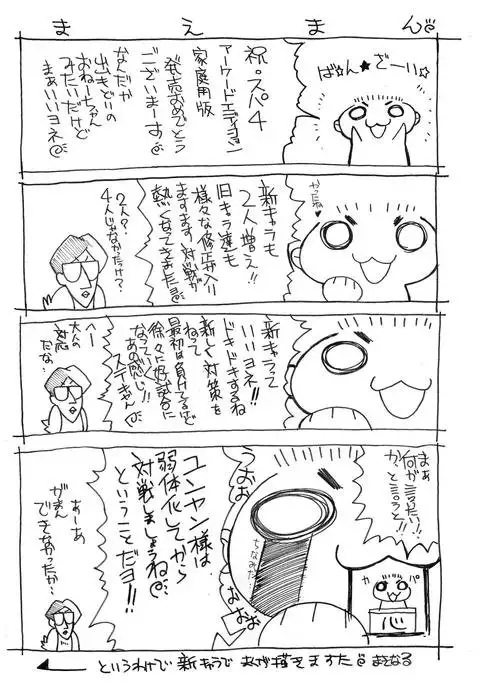 まえまん
ばん★ざーい☆
祝。スパ4
アーケードエディション
家庭用版
発売おめでとう
ございまーす
なんだか
出きどいの
おねーちゃん
みたいだけど
まぁいいヨネ
やったね♥
新キャラも
2人増え!!
旧キャラ達も
様々な修正が入り
ますます対戦が
熱くなってきましたヨ
2人?
4人じゃなかったけ?
新キャラって
いいヨネ!!
ドキドキするね
新しく対策を
ねって
最初は負けてるけど
徐々に好試合に
なってく
あの感じ!!
ステキやん
へー
大人の
対応
だな。
まぁ
何が言いたい!!
かと言うと!!
カパ
心
うおお
ちなみだ
おおお
ユンヤン様は
弱体化してから
対戦しましょうね
ということだヨ!!
あーあ
がまん
できなかったか…
というわけで新キャラでまんが描きますた